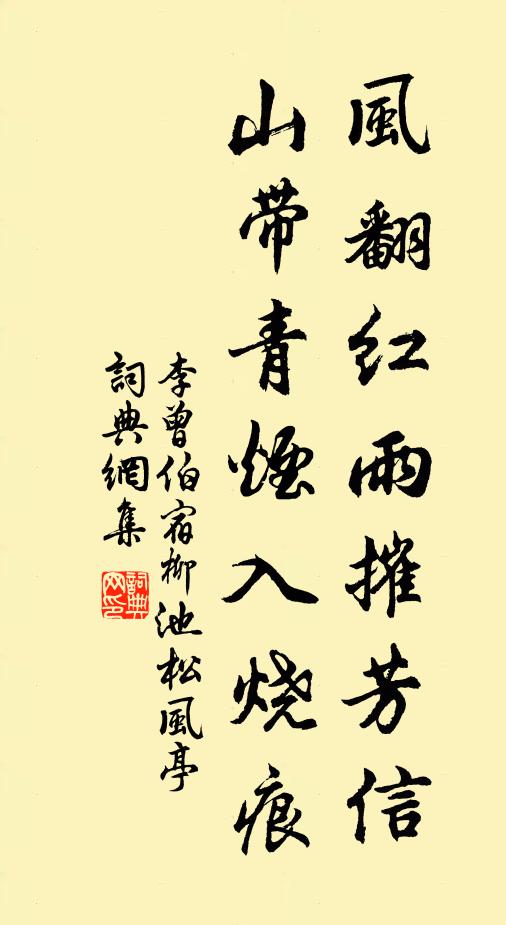 風翻红雨摧芳信
山带青煙入烧痕
李曾伯宿柳池松風亭
詞典網集
詞典网印